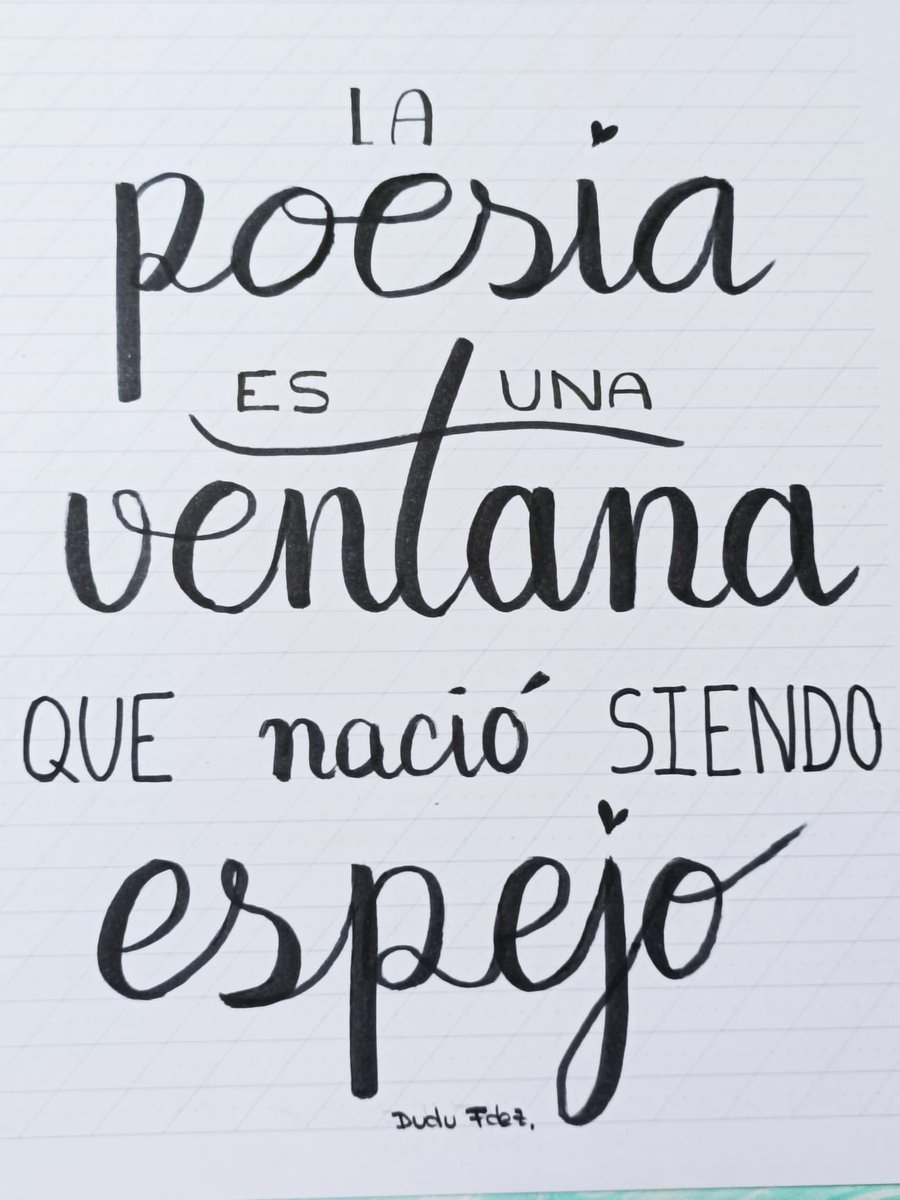 LA
poesia
ES UNA
ventana
QUE nació SIENDO
espejo
Dudu Fdez.